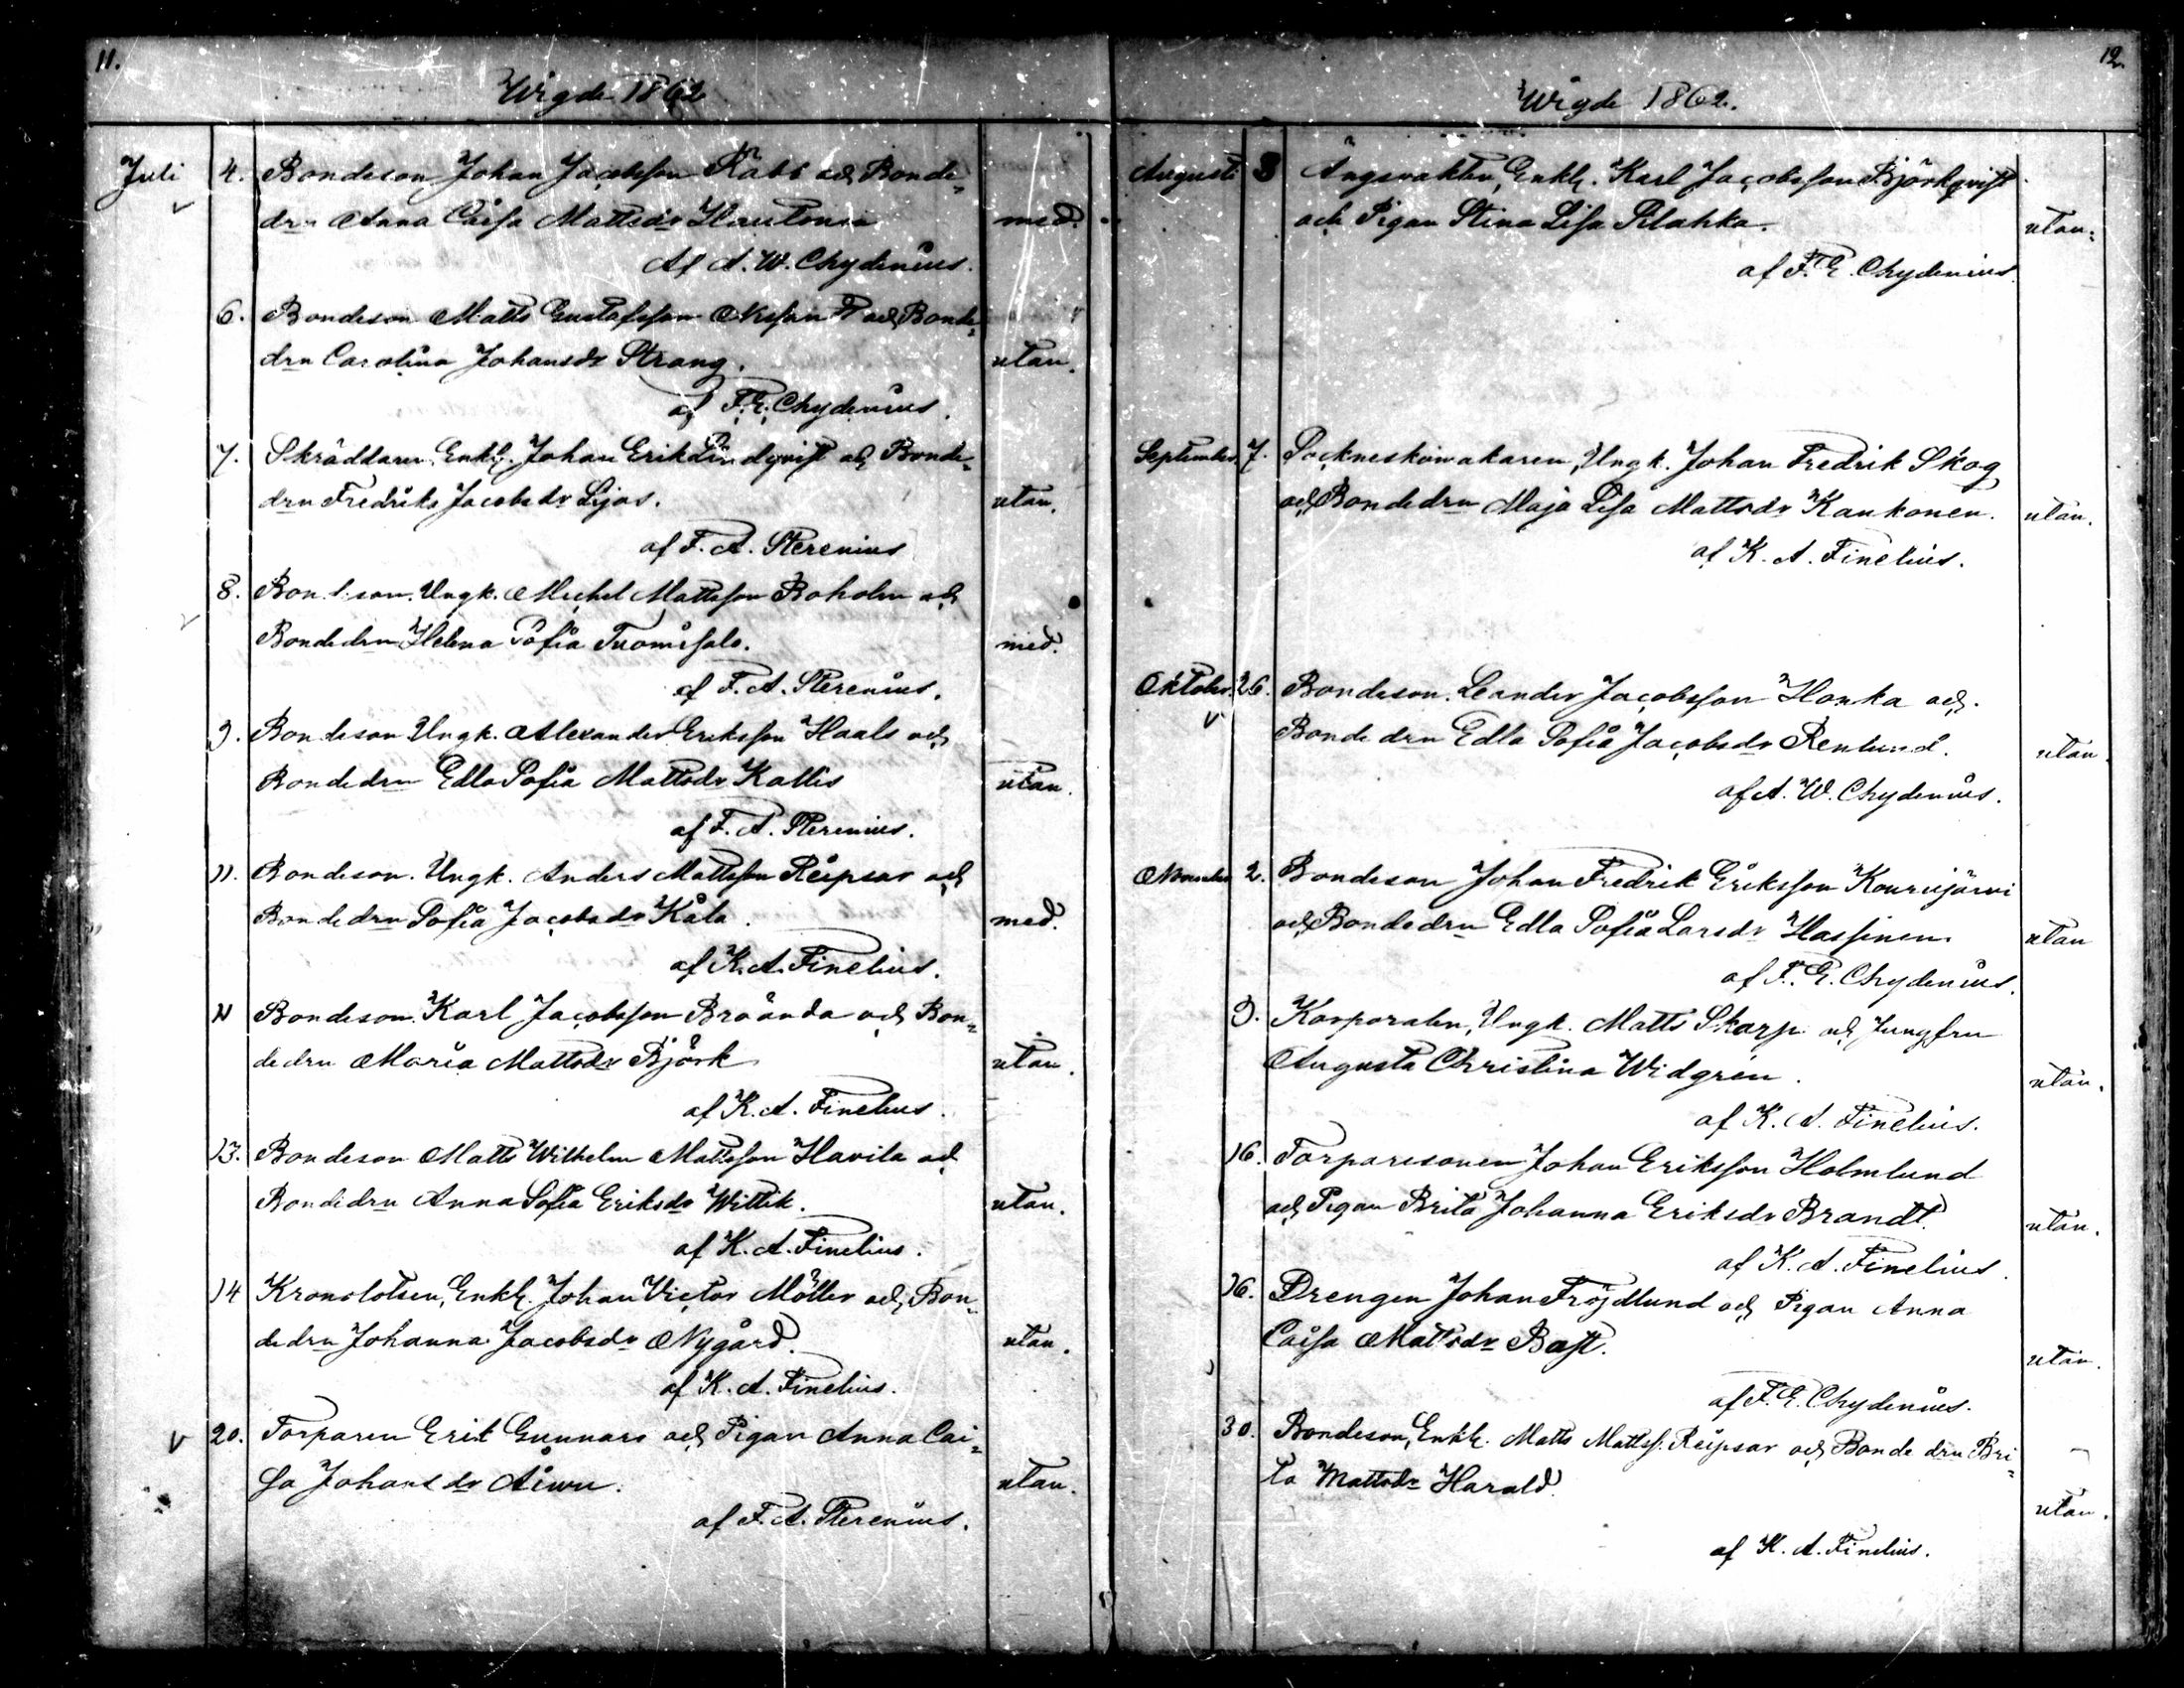 11.
Wigde 1862
Juli 4. Bondeson Johan Jacobsson Rabb och Bonde-
drn Anna Caisa Mattsdr Hautonen med.
Af A. W. Chydenius.
6. Bondeson Matts Gustafsson och Bonde-
drn Carolina Johansdr Strang. utan.
af F. E. Chydenius.
7. Skräddaren, Enkl. Johan Erik Lindqvist och Bonde-
drn Fredrika Jacobsdr Sijos. utan.
af F. A. Sterenius
8. Bondeson, Ungk. Michel Mattsson Boholm och
Bondedrn Helena Sofia Tuomisalo. med.
af F. A. Sterenius.
9. Bondeson Ungk. Alexander Eriksson Haals och
Bondedrn Edla Sofia Mattsdr Kallis utan.
af F. A. Sterenius.
11. Bondeson. Ungk. Anders Mattsson Reipsar och
Bondedrn Sofia Jacobsdr Kåla. med.
af K. A. Finelius.
11 Bondeson Karl Jacobsson Braända och Bon-
dedrn Maria Mattsdr Björk utan.
af K. A. Finelius.
13. Bondeson Matts Wilhelm Mattsson Havila och
Bondedrn Anna Sofia Eriksdr Wittik. utan.
af K. A. Finelius.
14 Kronolotsen, Enkl. Johan Victor Möller och Bon-
dedrn Johanna Jacobsdr Nygård. utan.
af K. A. Finelius.
20. Torparen Erik Gunnars och Pigan Anna Cai-
sa Johansdr utan.
af F. A. Sterenius.
12.
Wigde 1862.
Augusti 3 Ängsvakten, Enkl. Karl Jacobsson Björkqvist
och Pigan Stina Lisa Pilahka. utan.
af F. E. Chydenius.
September 7. Sockneskomakaren, Ungk. Johan Fredrik Skog
och Bondedrn Maja Lisa Mattsdr Kankonen. utan.
af K. A. Finelius.
Oktober 26. Bondeson. Leander Jacobsson Honka och
Bondedrn Edla Sofia Jacobsdr Renlund. utan.
af A. W. Chydenius.
November 2. Bondeson Johan Fredrik Eriksson Kourujärvi
och Bondedrn Edla Sofia Larsdr Hassinen utan
af F. E. Chydenius.
9. Korporalen, Ungk. Matts Skarp och Jungfru
Augusta Christina Widgren. utan.
af K. A. Finelius.
16. Torparesonen Johan Eriksson Holmlund
och Pigan Brita Johanna Eriksdr Brandt. utan.
af K. A. Finelius.
16. Drengen Johan Fröjdlund och Pigan Anna
Caisa Mattsdr Bast. utan.
af F. E. Chydenius.
30. Bondeson, Enkl. Matts Mattss. Reipsar och Bondedrn Bri-
ta Mattsdr Harald. utan.
af K. A. Finelius.